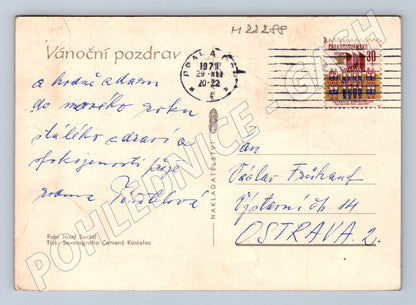 M 22288
Vánoční pozdrav
a hodně zdaru
do nového roku
stálého zdraví a
spokojenosti přeje
rodina
Foto Josef
Tisk: Severografia Červený Kostelec
NAKLADATELSTVÍ
PRAHA
1971
29.XII
20-22
Československo
30
Pan
Václav Frühauf
Výstavní č. 14
OSTRAVA 2.
POHLEDNICE - GASH